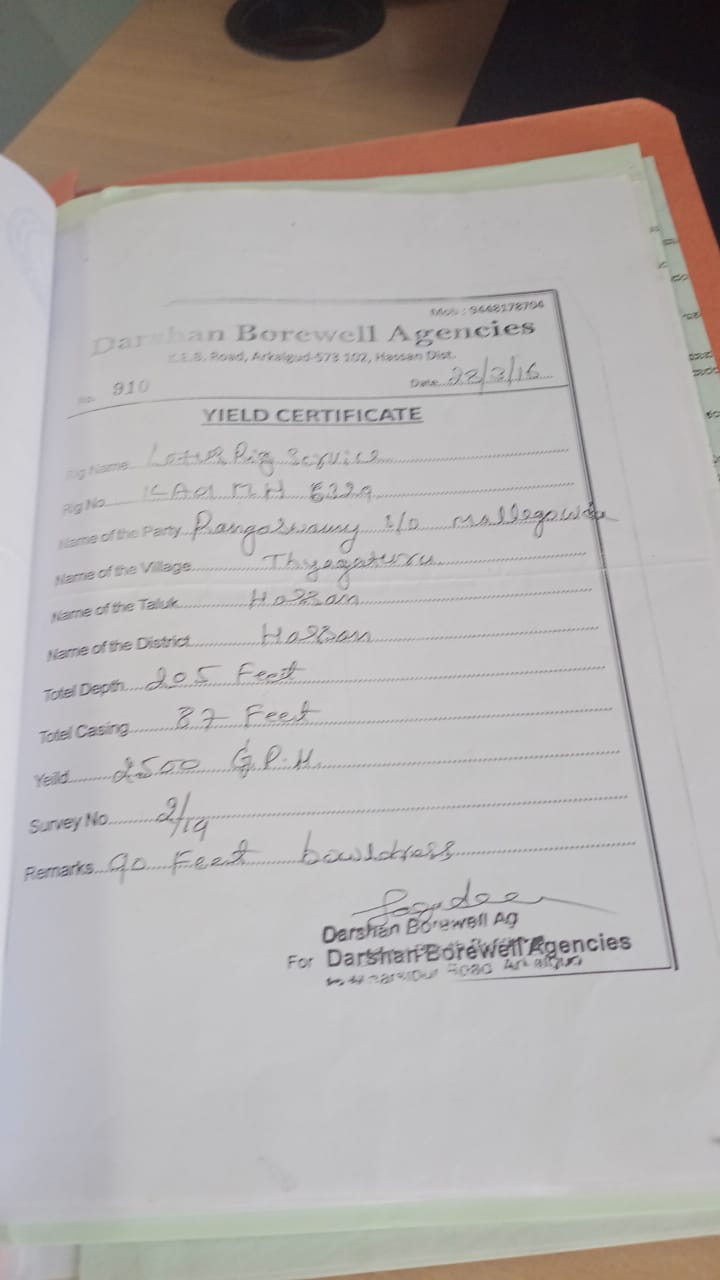 Mob : 9448178704
Darshan Borewell Agencies
K.E.B. Road, Arkalgud-573 102, Hassan Dist.
No. 910
Date 22/3/16
YIELD CERTIFICATE
Rig Name Lotus Rig Service
Rig No. KA01 MH 6329
Name of the Party Rangaswamy S/o Mallegowda
Name of the Village Thyagaturu
Name of the Taluk Hassan
Name of the District Hassan
Totel Depth 205 Feet
Totel Casing 87 Feet
Yeild 2500 G.P.H.
Survey No 2/19
Remarks 90 Feet bowldress
Darshan Borewell Ag
For Darshan Borewell Agencies
Road Arkalgud